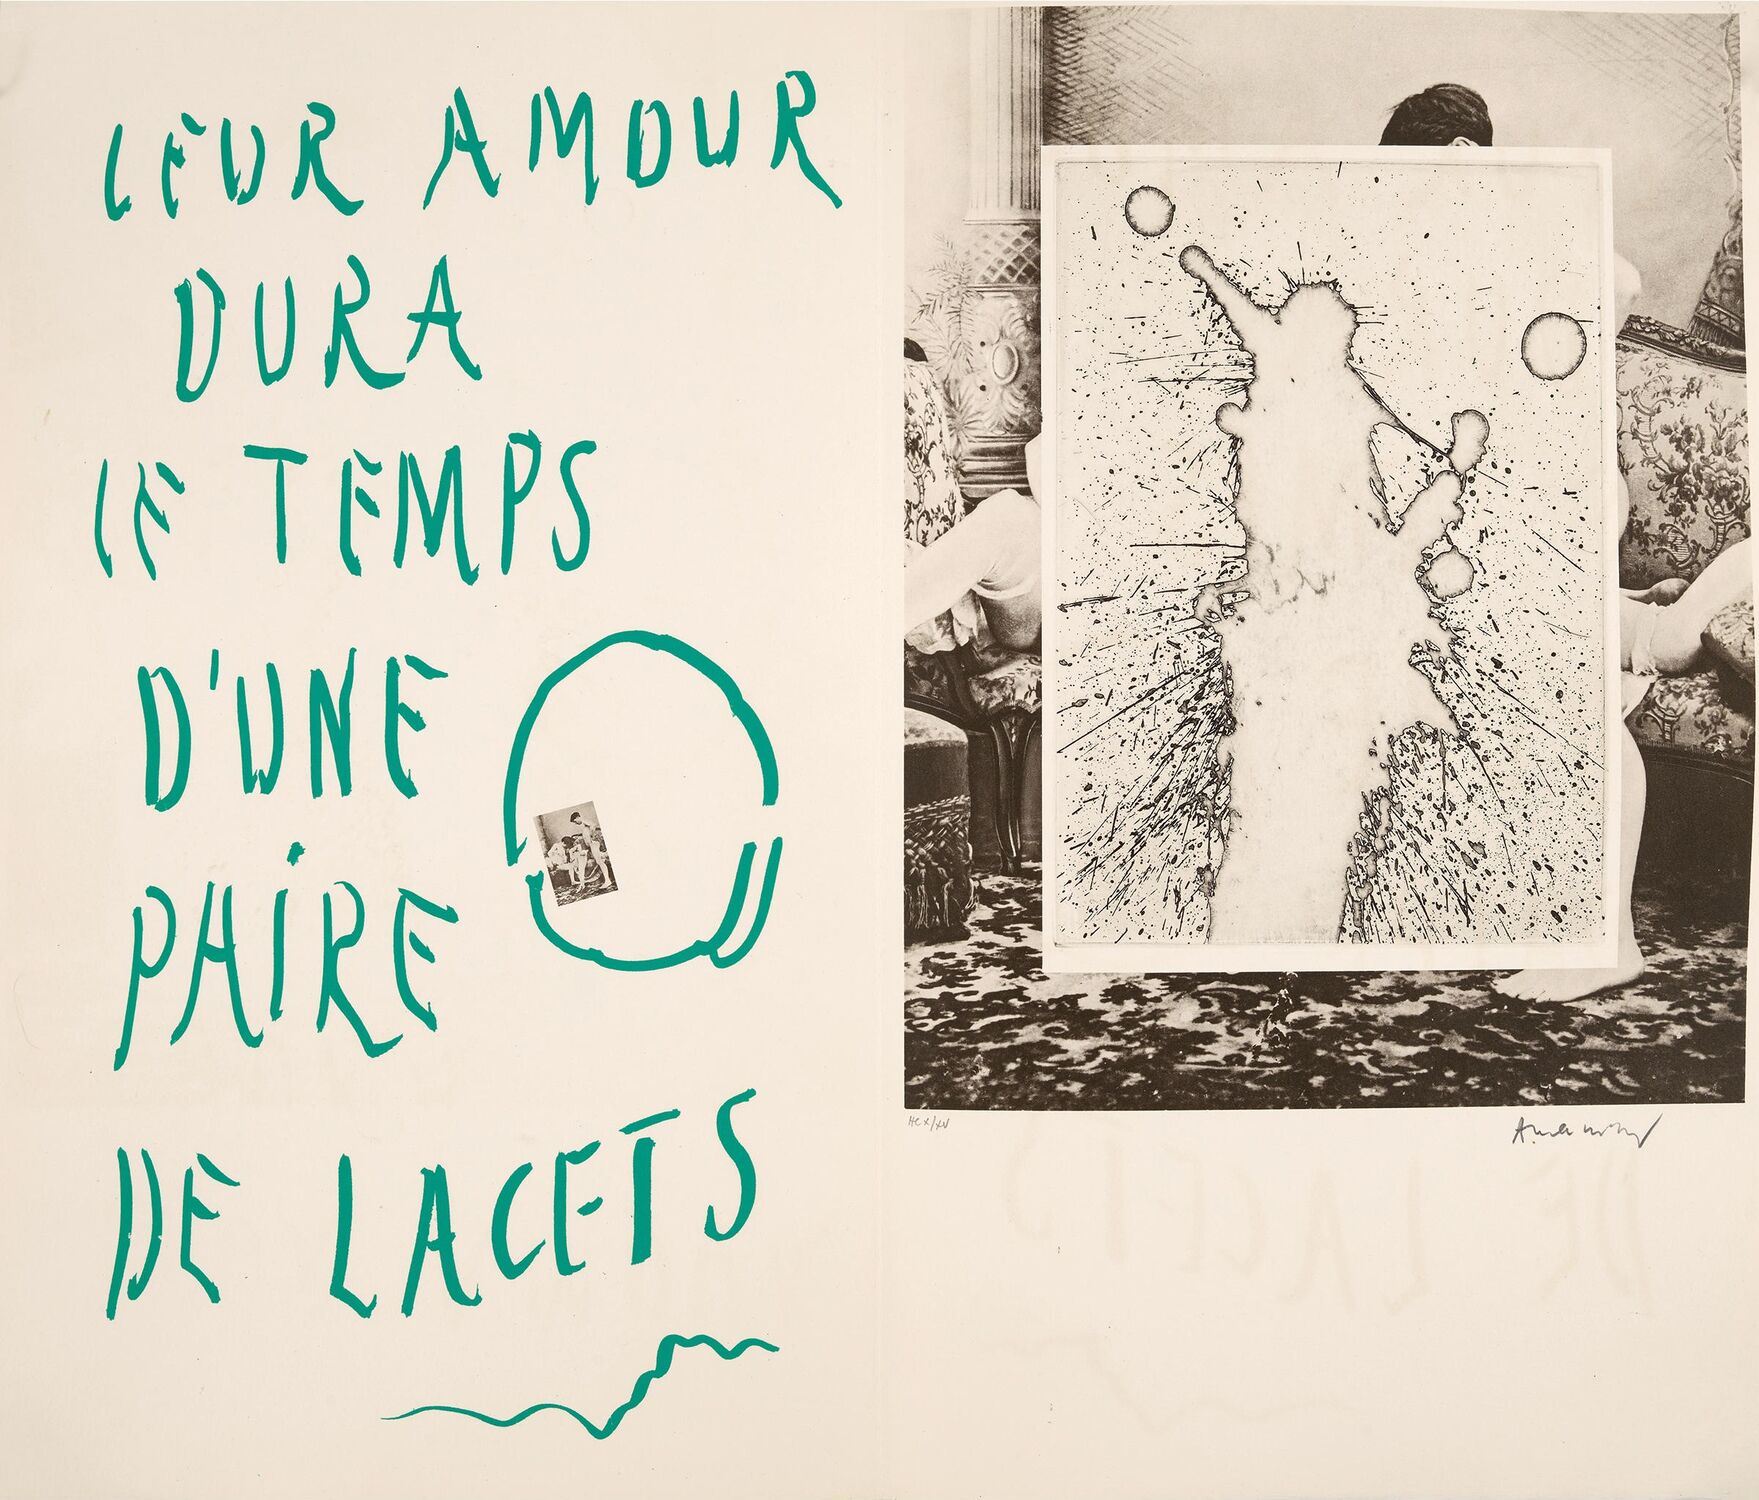 LEUR AMOUR
DURA
LE TEMPS
D'UNE
PAIRE
DE LACETS
HC X/XV